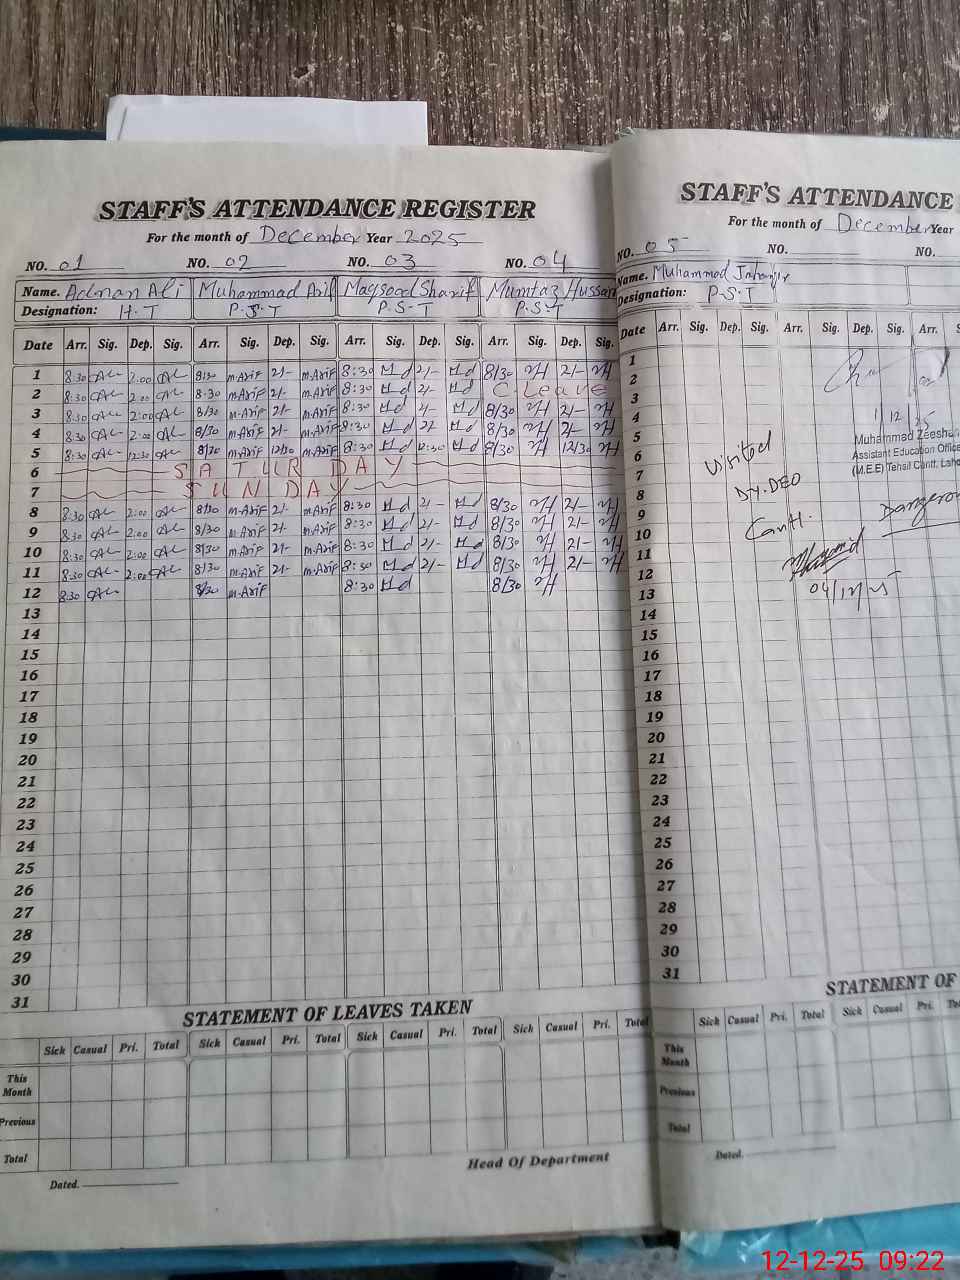 STAFF'S ATTENDANCE REGISTER
For the month of December Year 2025
NO. 01 NO. 02 NO. 03 NO. 04
Name. Adnan Ali Muhammad Arif Maqsood Sharif Mumtaz Hussain
Designation: H.T P.S.T P.S.T P.S.T
Date Arr. Sig. Dep. Sig. Arr. Sig. Dep. Sig. Arr. Sig. Dep. Sig. Arr. Sig. Dep. Sig.
1 8:30 2:00 8/30 m.Arif 2/- m.Arif 8:30 2/- 8/30 2/-
2 8:30 2:00 8:30 m.Arif 2/- m.Arif 8:30 2/- C.Leave
3 8:30 2:00 8/30 m.Arif 2/- m.Arif 8:30 2/- 8/30 2/-
4 8:30 2:00 8/30 m.Arif 2/- m.Arif 8:30 8/30 2/-
5 8:30 12:30 8/30 m.Arif 12/30 m.Arif 8:30 12:30 8/30 12/30
6 SATURDAY
7 SUNDAY
8 8:30 2:00 8/30 m.Arif 2/- m.Arif 8:30 2/- 8/30 2/-
9 8:30 2:00 8/30 m.Arif 2/- m.Arif 8:30 2/- 8/30 2/-
10 8:30 2:00 8/30 m.Arif 2/- m.Arif 8:30 2/- 8/30 2/-
11 8:30 2:00 8/30 m.Arif 2/- m.Arif 8:30 2/- 8/30 2/-
12 8:30 8/30 m.Arif 8:30 8/30
13
14
15
16
17
18
19
20
21
22
23
24
25
26
27
28
29
30
31
STATEMENT OF LEAVES TAKEN
Sick Casual Pri. Total Sick Casual Pri. Total Sick Casual Pri. Total Sick Casual Pri. Total
This Month
Previous
Total
Head Of Department
Dated.
STAFF'S ATTENDANCE
For the month of December Year
NO. 05 NO. NO.
Name. Muhammad
Designation: P.S.T
Date Arr. Sig. Dep. Sig. Arr. Sig. Dep. Sig. Arr.
1
2
3
4 1/12/25
5 Muhammad Zeeshan
6 Visited Assistant Education Office
7 (M.E.E) Tehsil Cantt, Laho
8 Dy.DEO
9 Cantt.
10
11
12
13 04/12/25
14
15
16
17
18
19
20
21
22
23
24
25
26
27
28
29
30
31
STATEMENT OF
Sick Casual Pri. Total Sick Casual Pri.
This Month
Previous
Total
Dated.
12-12-25 09:22